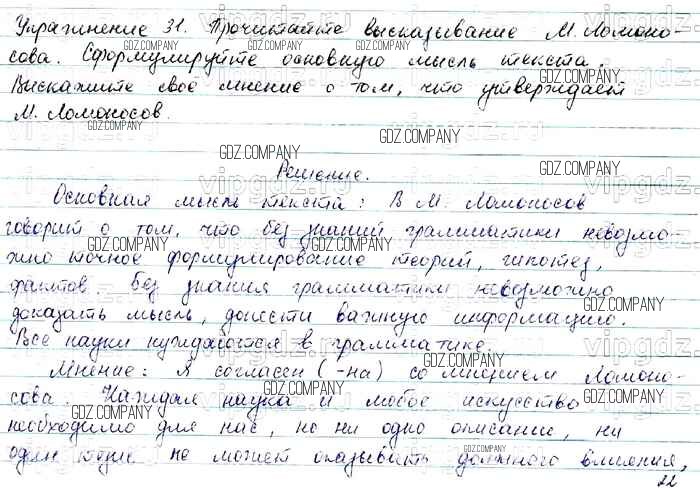 Упражнение 31. Прочитайте высказывание М. Ломоно-
сова. Сформулируйте основную мысль текста.
Выскажите своё мнение о том, что утверждает
М. Ломоносов.
Решение.
Основная мысль текста: В М. Ломоносов
говорит о том, что без знаний грамматики невозмо-
жно точное формулирование теорий, гипотез,
фактов без знания грамматики невозможно
доказать мысль, донести важную информацию.
Все науки нуждаются в грамматике.
Мнение: Я согласен (-на) со мнением Ломоно-
сова. Каждая наука и любое искусство
необходимо для нас, но ни одно описание, ни
один не может оказывать должного влияния,
22
GDZ.COMPANY
vipgdz.ru